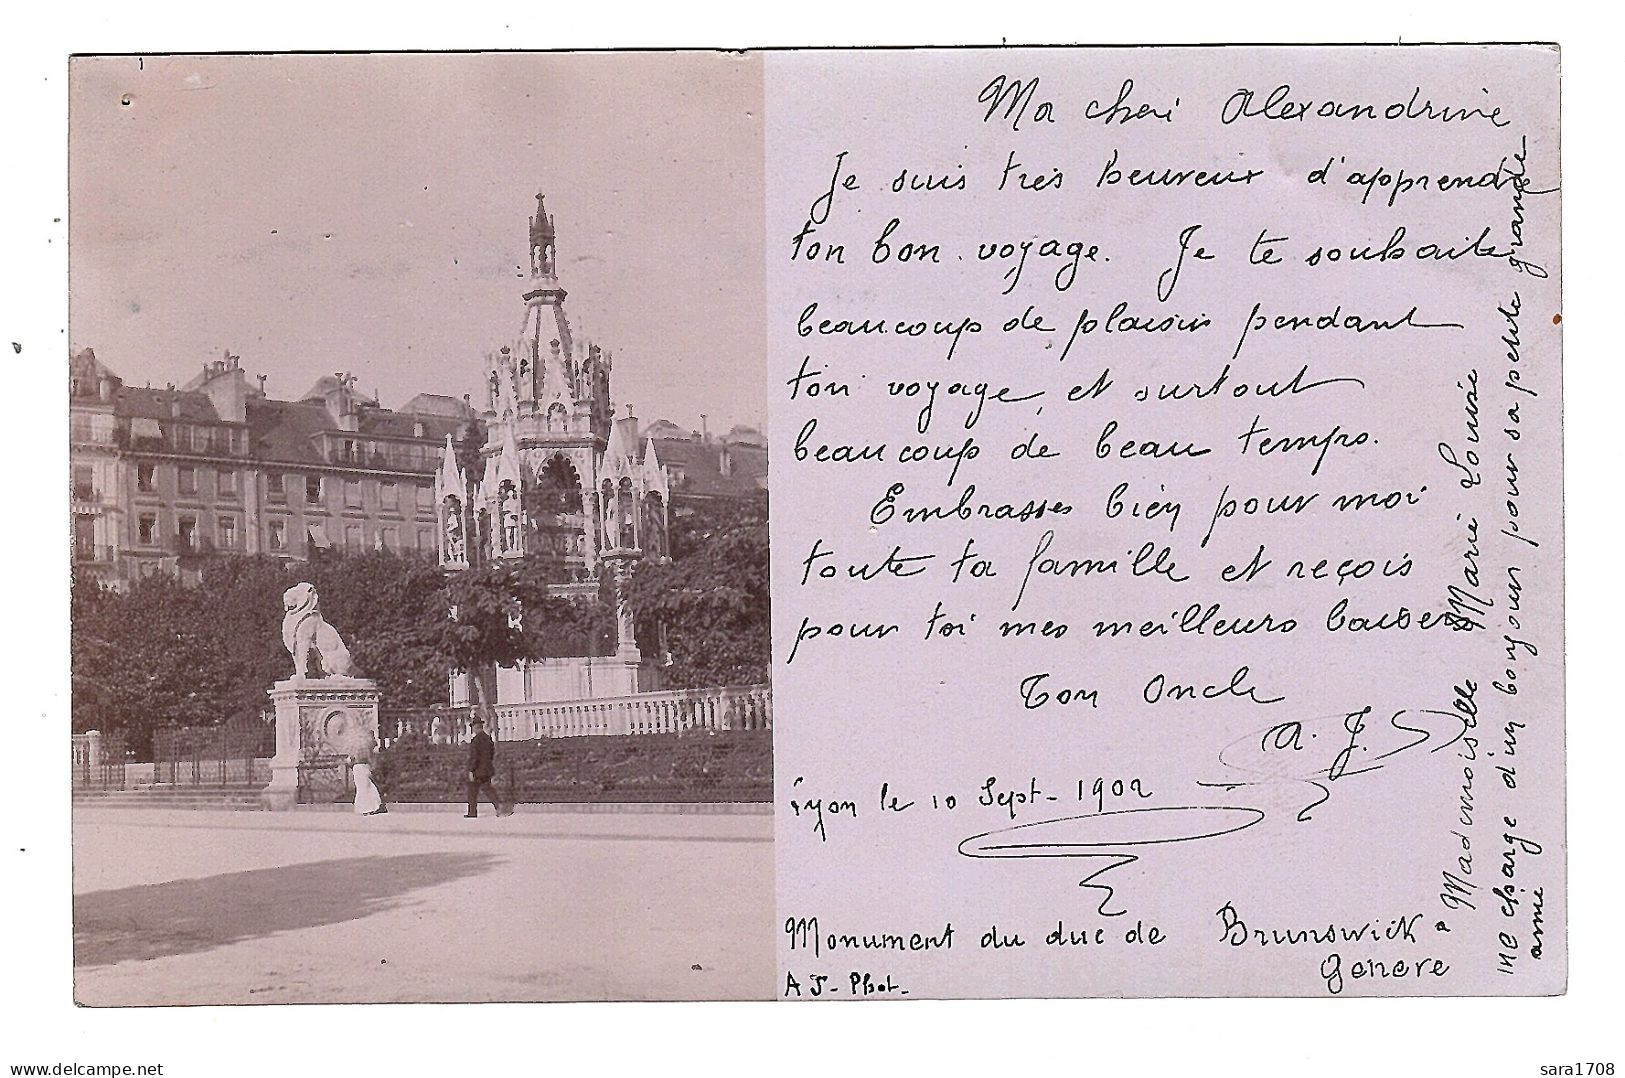 Ma cheri Alexandrine
Je suis très heureux d'apprendre
ton bon voyage. Je te souhaite
beaucoup de plaisir pendant
ton voyage et surtout
beaucoup de beau temps.
Embrasses bien pour moi
toute ta famille et reçois
pour toi mes meilleurs baisers
Ton Oncle
A. J.
Lyon le 10 Sept- 1902
Monument du duc de Brunswick à
Genève
A J- Phot-
Mademoiselle Marie Louise
me charge d'un bonjour pour sa petite grande
amie
www.delcampe.net
sara1708